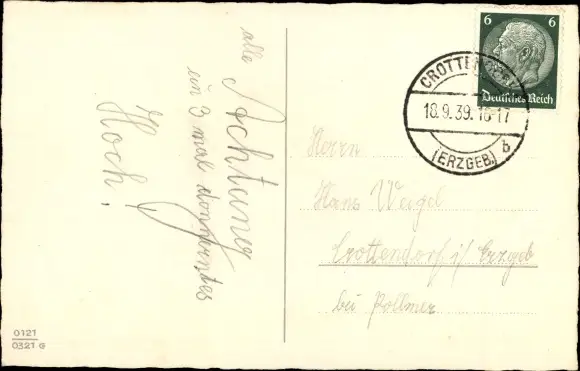 alle
Achtung
ein 3 mal donnerndes
Hoch!
6 6
Deutsches Reich
CROTTENDORF
18.9.39.16-17
(ERZGEB.) b
Herrn
Hans Weigel
Crottendorf i/ Erzgeb
bei Pollmer
0121
0321 G